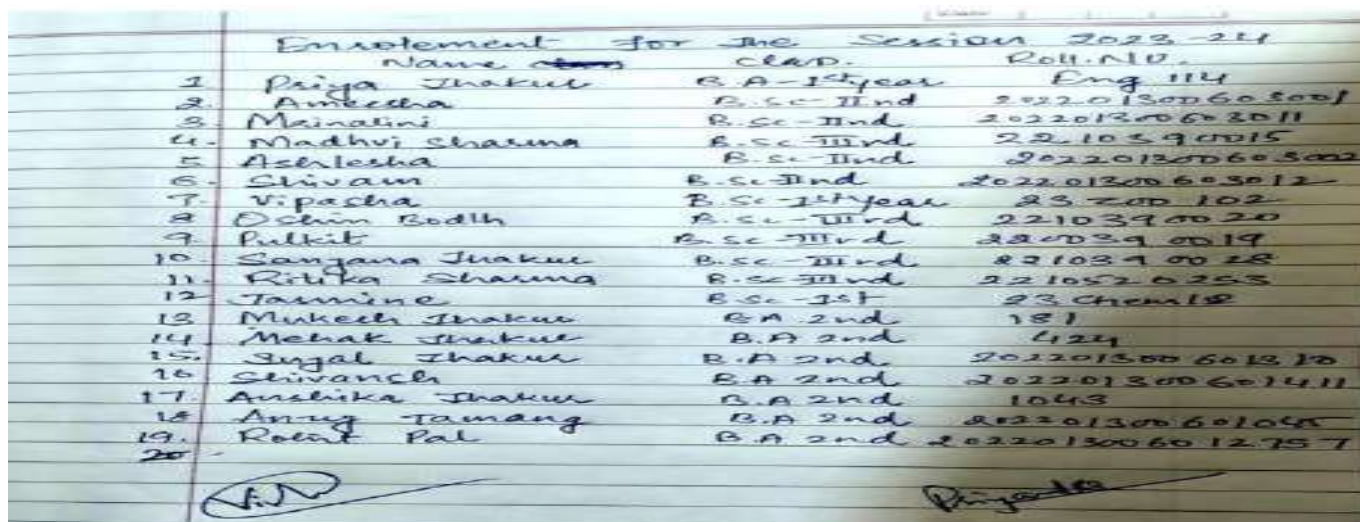 Enrolement for the Session 2023-24
Name Class. Roll.NO.
1 Priya Thakur B.A-1st year Eng 114
2. Ameesha B.Sc-IInd 2022013006603001
3 Mainalini B.Sc-IInd 2022013006603011
4. Madhvi Sharma B.Sc-IIIrd 2210390015
5 Ashlesha B.Sc-IInd 2022013006603002
6. Shivam B.Sc-IInd 2022013006603012
7. Vipasha B.Sc-1st year 23 ZOO 102
8 Oshin Bodh B.Sc-IIIrd 2210390020
9. Pulkit B.Sc-IIIrd 2210390019
10. Sanjana Thakur B.Sc-IIIrd 2210390028
11. Ritika Sharma B.Sc-IIIrd 2210520253
12 Jasmine B.Sc-Ist 23 Chem 18
13 Mukesh Thakur B.A 2nd 181
14 Mehak Thakur B.A 2nd 424
15. Thakur B.A 2nd
16 Shivansh B.A 2nd
17. Anshika Thakur B.A 2nd 1043
18 Anug Tamang B.A 2nd
19. Rohit Pal B.A 2nd
20.
Priyanka